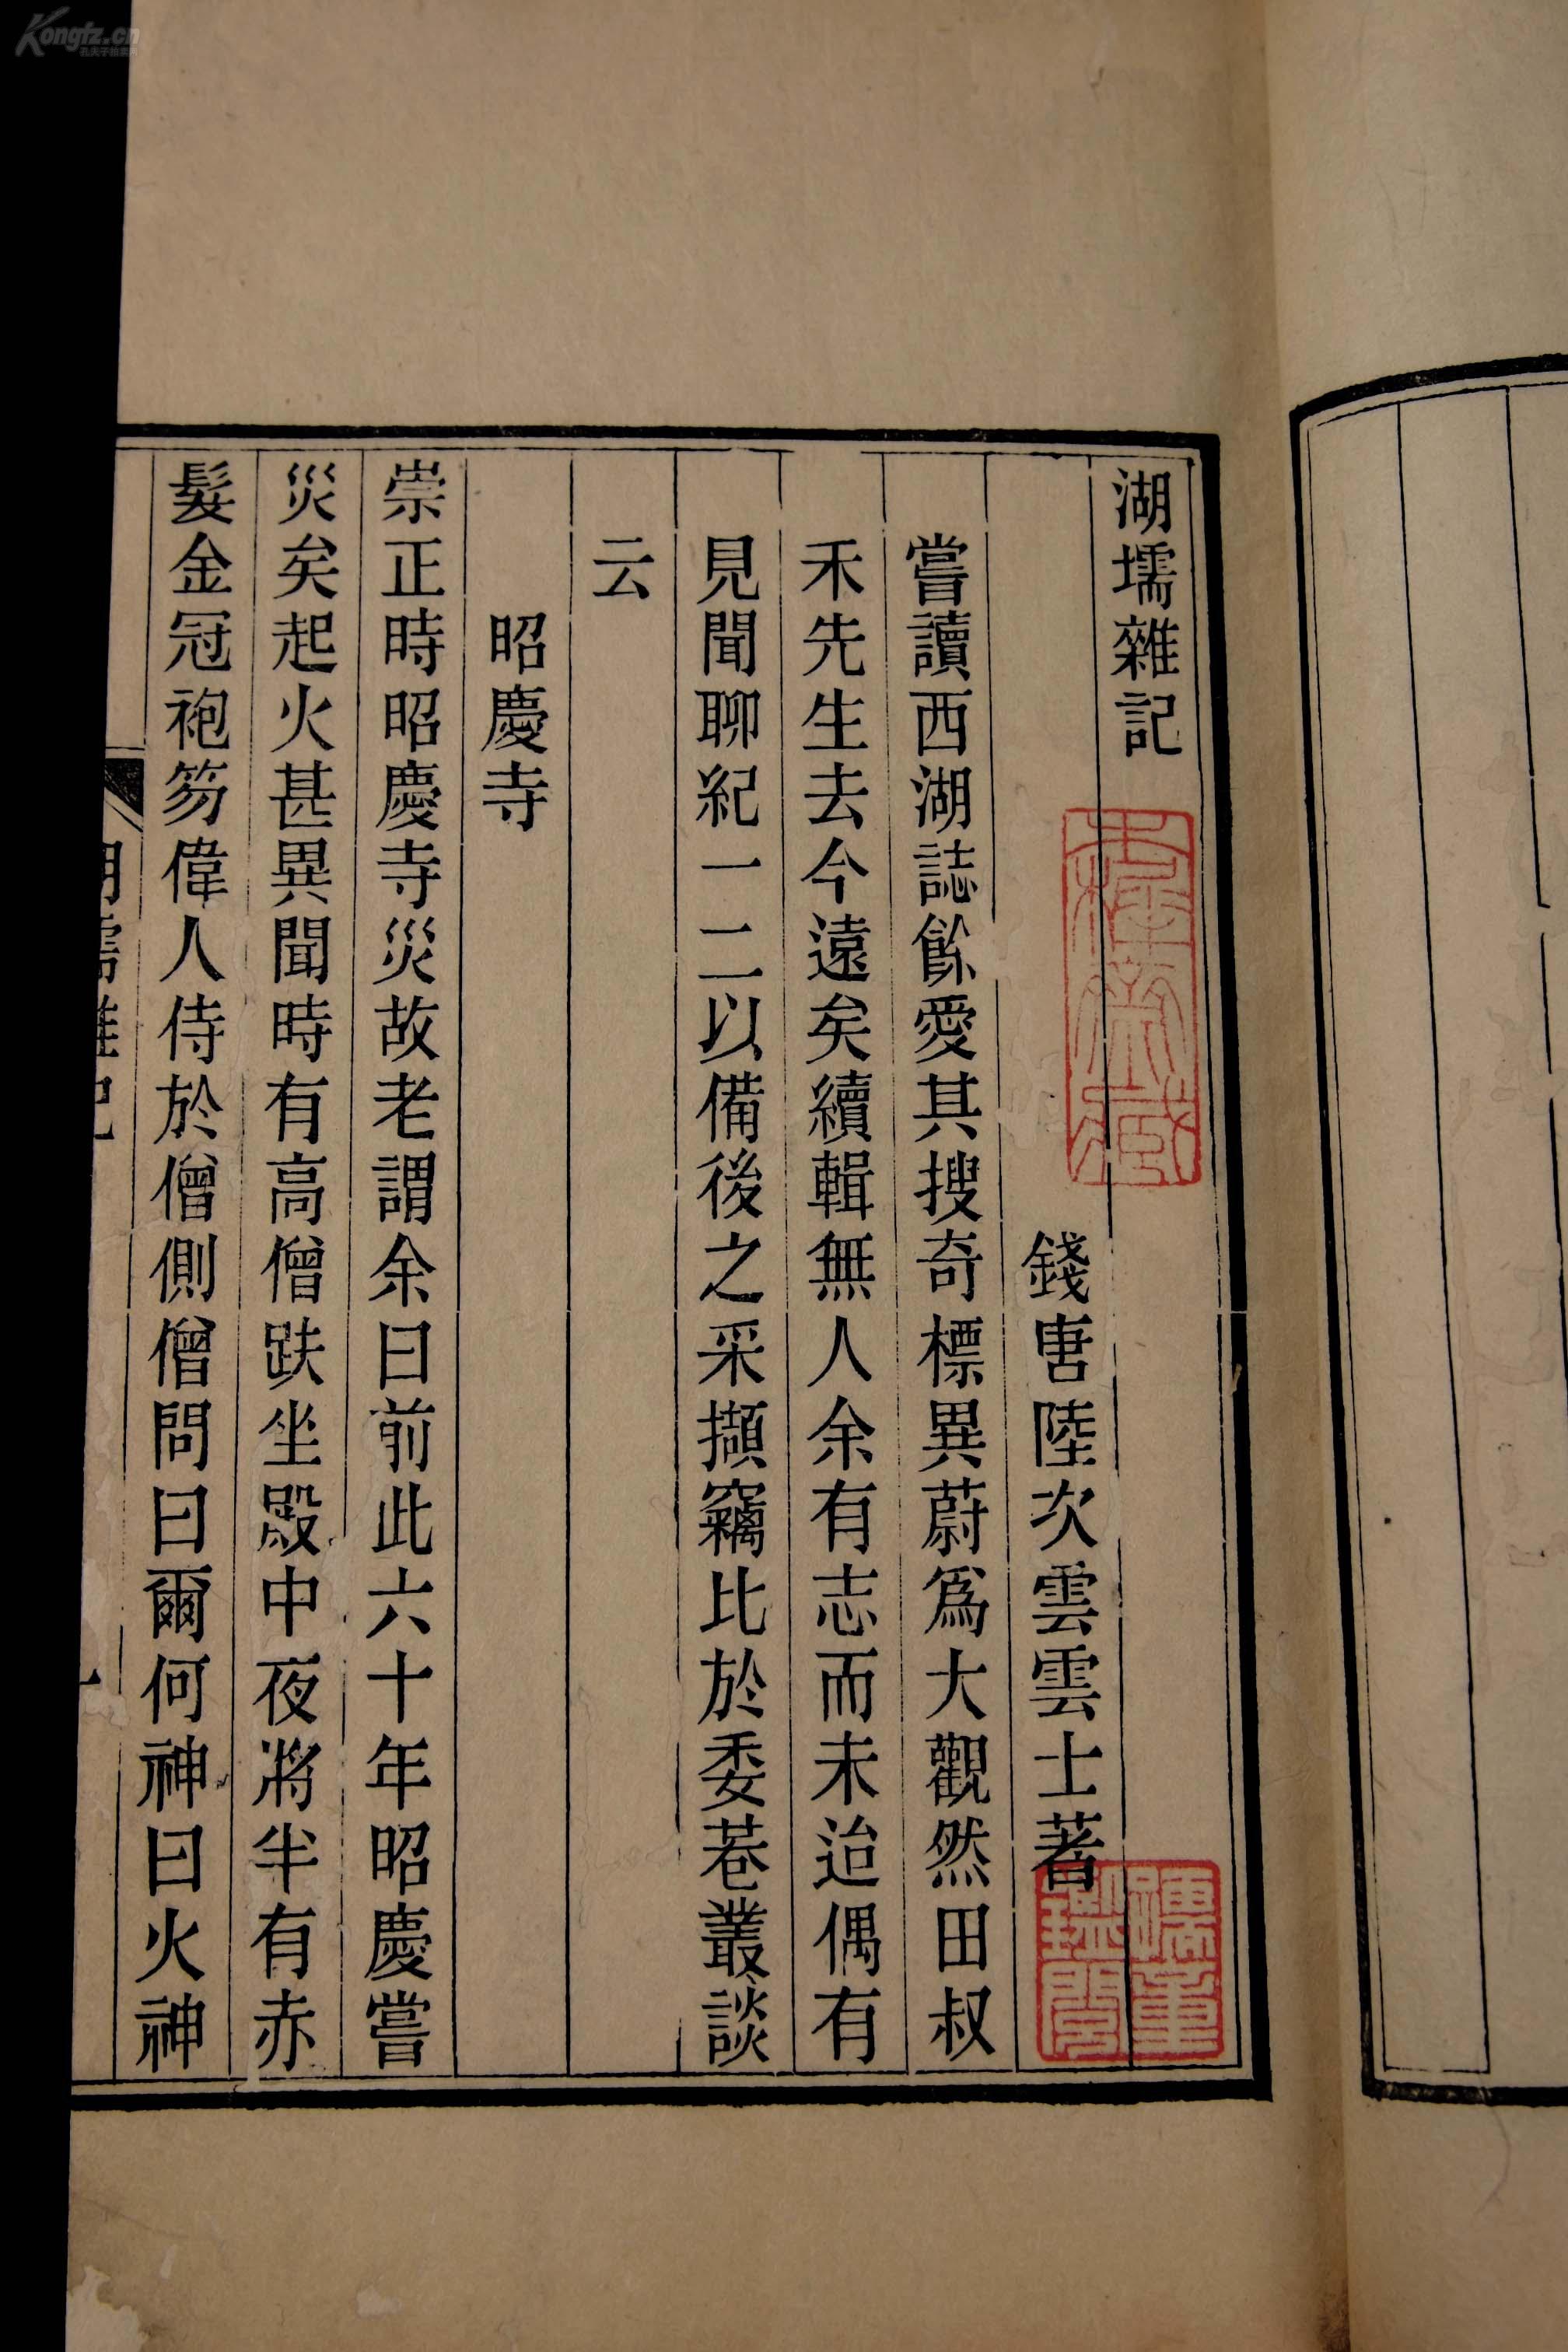 湖壖雜記
錢唐陸次雲雲士著
嘗讀西湖誌餘愛其搜奇標異蔚爲大觀然田叔
禾先生去今遠矣續輯無人余有志而未迨偶有
見聞聊紀一二以備後之采擷竊比於委巷叢談
云
昭慶寺
崇正時昭慶寺災故老謂余曰前此六十年昭慶嘗
災矣起火甚異聞時有高僧趺坐殿中夜將半有赤
髮金冠袍笏偉人侍於僧側僧問曰爾何神曰火神
Kongfz.cn